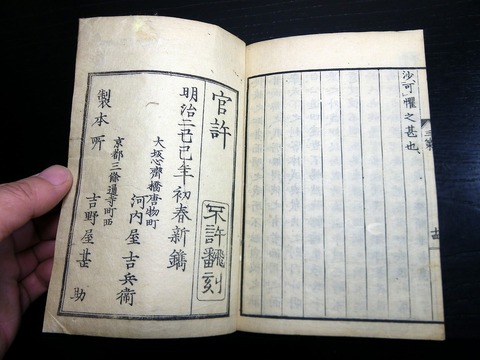 沙、可懼之甚也、
官許
不許飜刻
明治二己巳年初春新鐫
大坂心齋橋唐物町
河内屋吉兵衛
京都三條通寺町西
製本所 吉野屋甚助